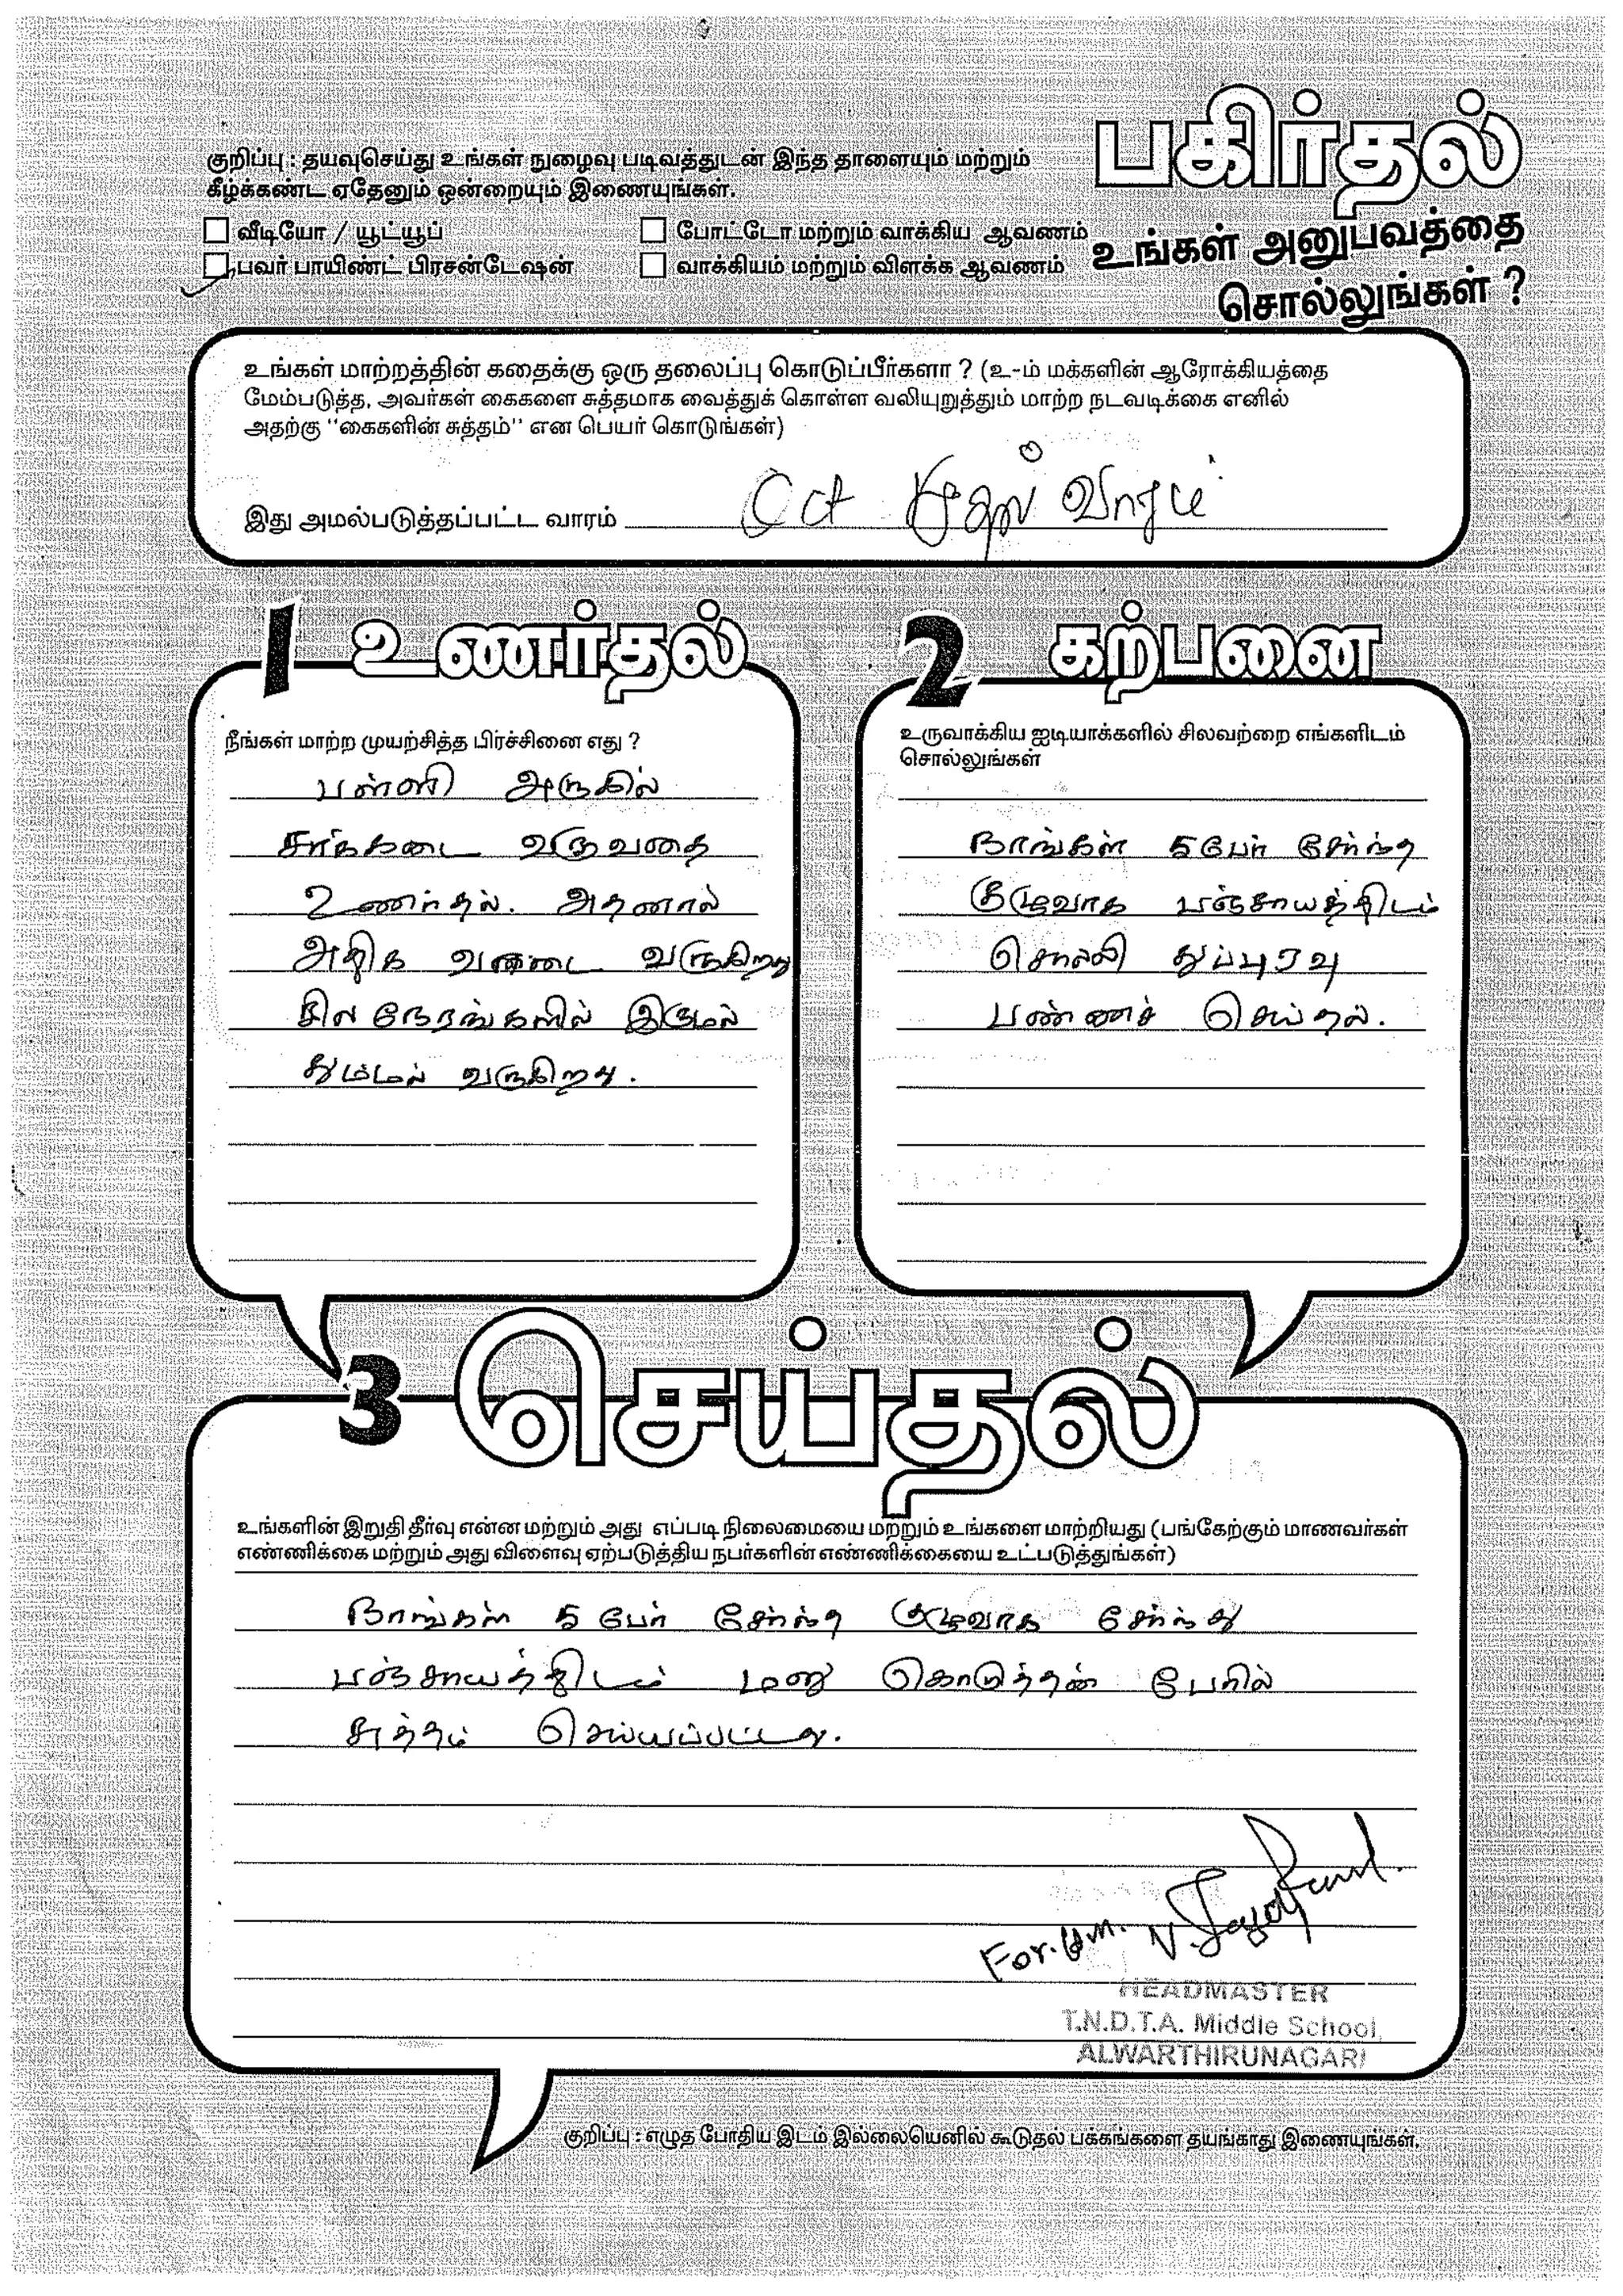 பகிர்தல்
உங்கள் அனுபவத்தை
சொல்லுங்கள் ?
குறிப்பு : தயவுசெய்து உங்கள் நுழைவு படிவத்துடன் இந்த தாளையும் மற்றும்
கீழ்க்கண்ட ஏதேனும் ஒன்றையும் இணையுங்கள்.
வீடியோ / யூட்யூப்
போட்டோ மற்றும் வாக்கிய ஆவணம்
பவர் பாயிண்ட் பிரசன்டேஷன்
வாக்கியம் மற்றும் விளக்க ஆவணம்
உங்கள் மாற்றத்தின் கதைக்கு ஒரு தலைப்பு கொடுப்பீர்களா ? (உ-ம் மக்களின் ஆரோக்கியத்தை
மேம்படுத்த, அவர்கள் கைகளை சுத்தமாக வைத்துக் கொள்ள வலியுறுத்தும் மாற்ற நடவடிக்கை எனில்
அதற்கு "கைகளின் சுத்தம்" என பெயர் கொடுங்கள்)
இது அமல்படுத்தப்பட்ட வாரம் Oct முதல் வாரம்
1 உணர்தல்
நீங்கள் மாற்ற முயற்சித்த பிரச்சினை எது ?
பள்ளி அருகில்
சாக்கடை வருவதை
உணர்தல். அதனால்
அதிக வருகிறது
சில நேரங்களில் இருமல்
தும்மல் வருகிறது.
2 கற்பனை
உருவாக்கிய ஐடியாக்களில் சிலவற்றை எங்களிடம்
சொல்லுங்கள்
நாங்கள் 5 பேர் சேர்ந்த
குழுவாக பஞ்சாயத்திடம்
சொல்லி துப்புரவு
பண்ணச் செய்தல்.
3 செய்தல்
உங்களின் இறுதி தீர்வு என்ன மற்றும் அது எப்படி நிலைமையை மற்றும் உங்களை மாற்றியது (பங்கேற்கும் மாணவர்கள்
எண்ணிக்கை மற்றும் அது விளைவு ஏற்படுத்திய நபர்களின் எண்ணிக்கையை உட்படுத்துங்கள்)
நாங்கள் 5 பேர் சேர்ந்த குழுவாக சேர்ந்து
பஞ்சாயத்திடம் மனு கொடுத்தன் பேரில்
சுத்தம் செய்யப்பட்டது.
For. H.M.
HEADMASTER
T.N.D.T.A. Middle School,
ALWARTHIRUNAGARI
குறிப்பு : எழுத போதிய இடம் இல்லையெனில் கூடுதல் பக்கங்களை தயங்காது இணையுங்கள்.